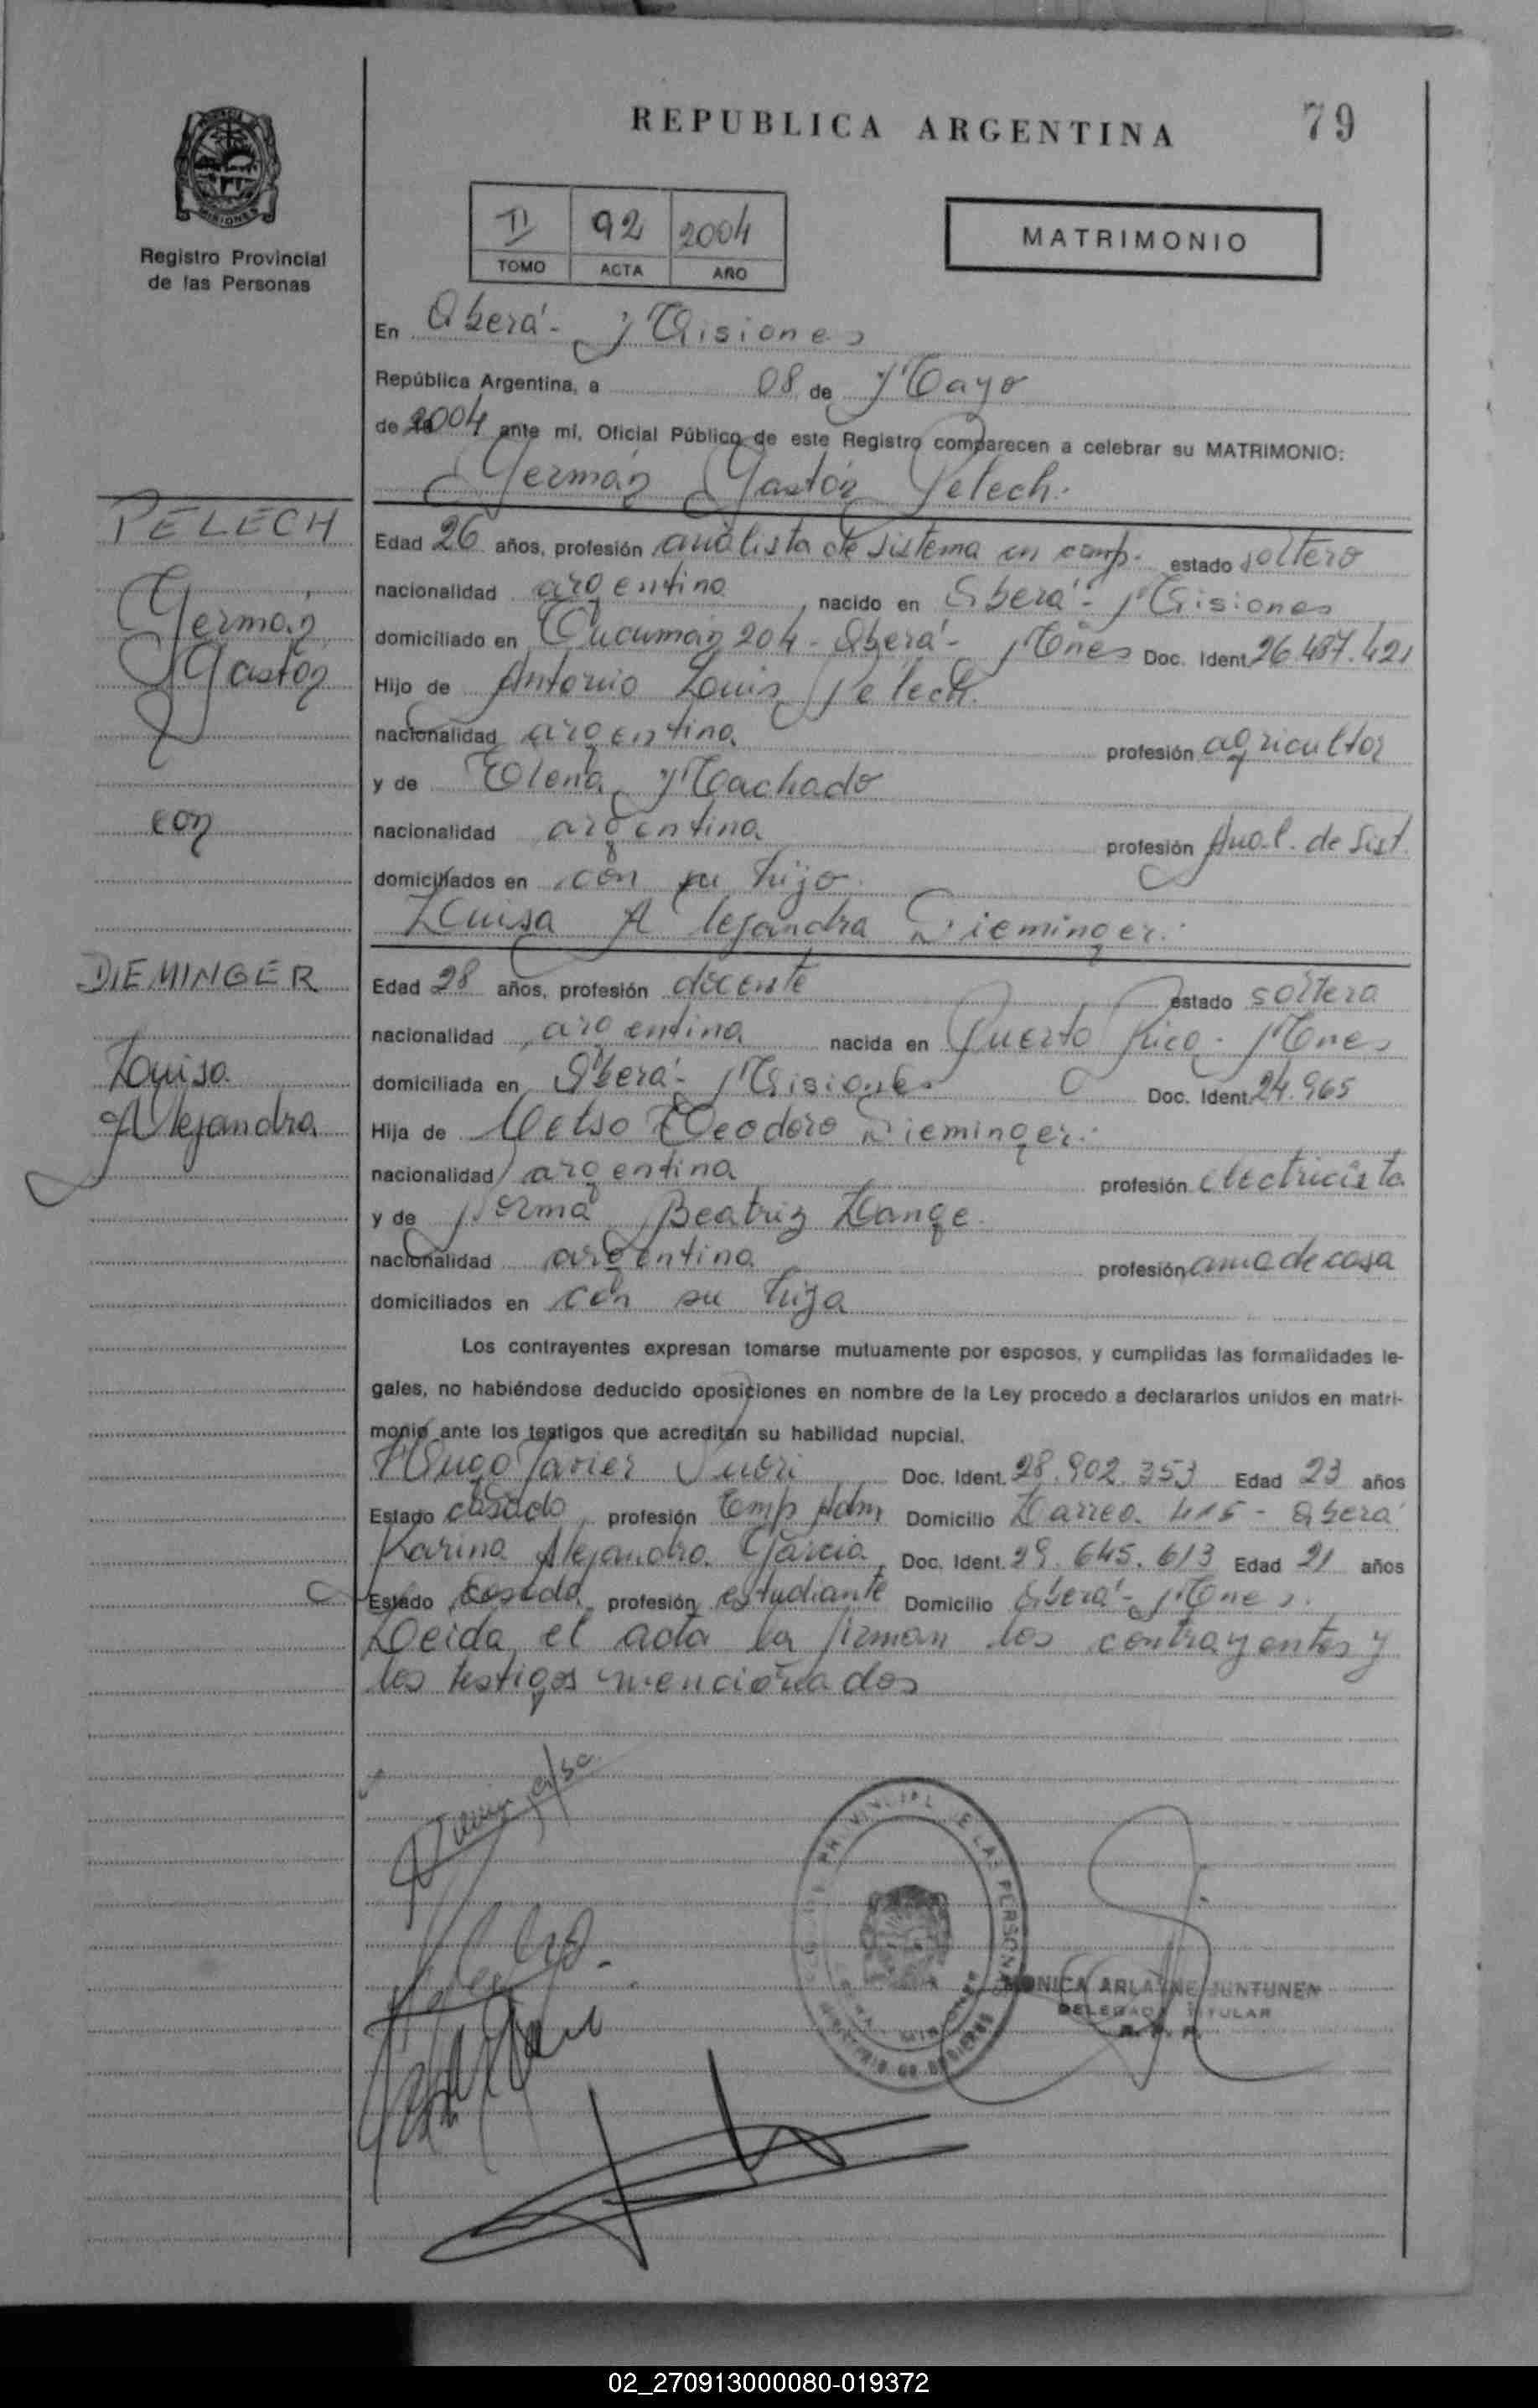 REPUBLICA ARGENTINA
79
Registro Provincial
de las Personas
II 92 2004
TOMO ACTA AÑO
MATRIMONIO
En Oberá - Misiones
República Argentina, a 08 de Mayo
de 2004 ante mí, Oficial Público de este Registro comparecen a celebrar su MATRIMONIO:
Germán Gastón Pelech.
PELECH
Germán
Gastón
con
DIEMINGER
Luisa
Alejandra
Edad 26 años, profesión analista de sistema en comp. estado soltero
nacionalidad argentina nacido en Oberá - Misiones
domiciliado en Tucumán 204 - Oberá - Mnes Doc. Ident. 26.487.421
Hijo de Antonio Luis Pelech.
nacionalidad argentina profesión agricultor
y de Elena Machado
nacionalidad argentina profesión Anal. de Sist.
domiciliados en con su hijo.
Luisa Alejandra Dieminger.
Edad 28 años, profesión docente estado soltera
nacionalidad argentina nacida en Puerto Rico - Mnes
domiciliada en Oberá - Misiones Doc. Ident. 24.965
Hija de Celso Deodoro Dieminger.
nacionalidad argentina profesión electricista
y de Norma Beatriz Lange.
nacionalidad argentina profesión ama de casa
domiciliados en con su hija
Los contrayentes expresan tomarse mutuamente por esposos, y cumplidas las formalidades le-
gales, no habiéndose deducido oposiciones en nombre de la Ley procedo a declararlos unidos en matri-
monio ante los testigos que acreditan su habilidad nupcial.
Hugo Javier Doc. Ident. 28.902.353 Edad 23 años
Estado casado profesión Emp Adm Domicilio Larrea 415 - Oberá
Karina Alejandra Garcia Doc. Ident. 29.645.613 Edad 21 años
Estado casada profesión estudiante Domicilio Oberá - Mnes.
Leida el acta la firman los contrayentes y
los testigos mencionados
MONICA ARLAINE JUNTUNEN
DELEGADA TITULAR
R. P. P.
02_270913000080-019372